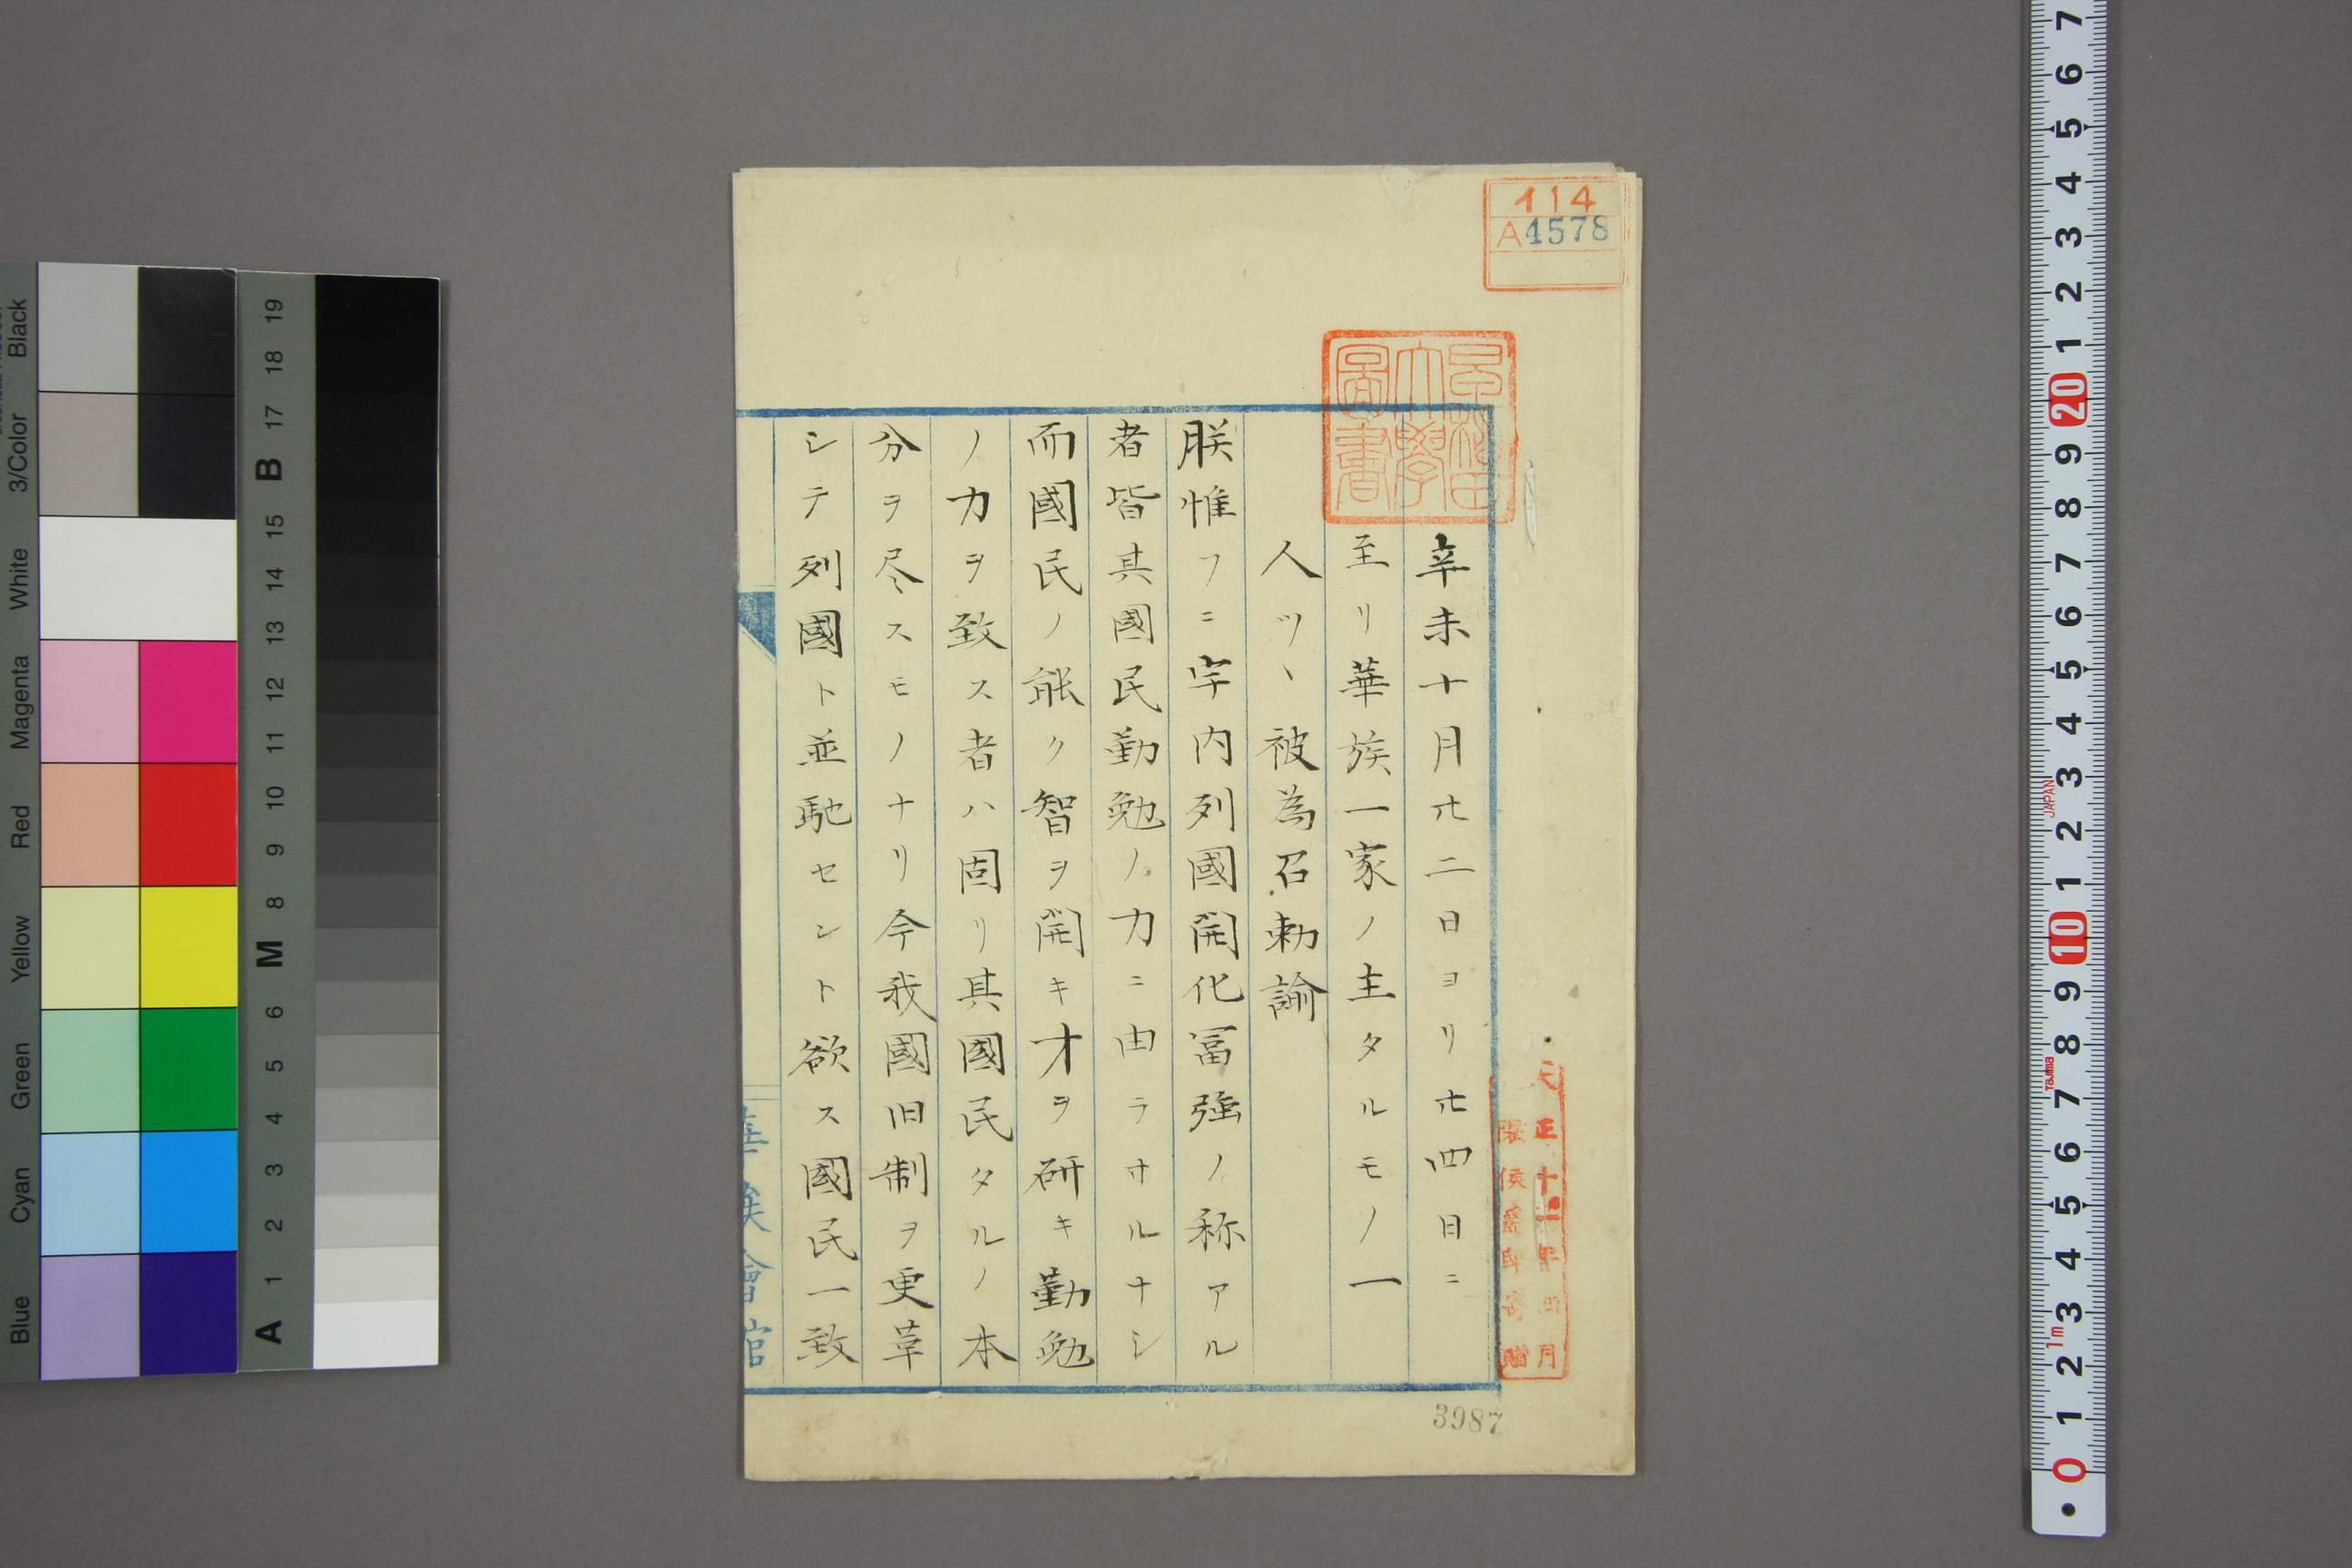 辛未十月廿二日ヨリ廿四日ニ
至リ華族一家ノ主タルモノ一
人ツヽ被為召勅諭
朕惟フニ宇内列國開化冨強ノ称アル
者皆其國民勤勉ノ力ニ由ラサルナシ
而國民ノ能ク智ヲ開キ才ヲ研キ勤勉
ノ力ヲ致ス者ハ固リ其國民タルノ本
分ヲ尽スモノナリ今我國旧制ヲ更革
シテ列國ト並馳セント欲ス國民一致
華族會館
イ14
A4578
早稲田
大學
圖書
大正十一年四月
隈侯爵邸寄贈
3987
Black
3/Color
White
Magenta
Red
Yellow
Green
Cyan
Blue
19
18
17
B
15
14
13
12
11
10
9
8
M
6
5
4
3
2
1
A
7
6
5
4
3
2
1
20
9
8
7
6
5
4
3
2
1
10
9
8
7
6
5
4
3
2
1
0
JAPAN
Tajima
1m